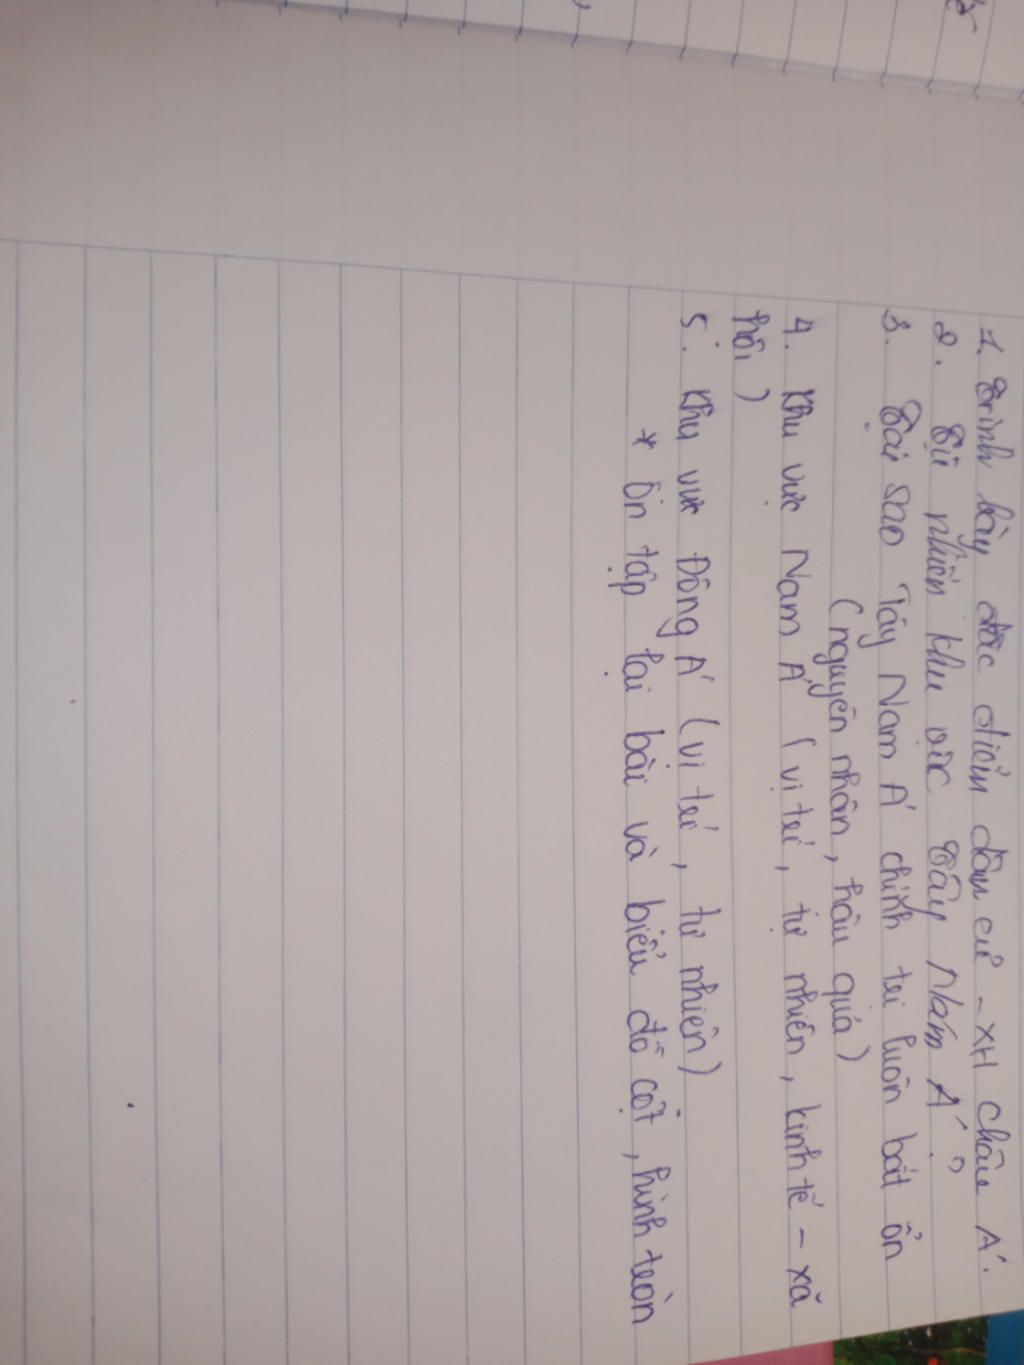 1. Trình bày đặc điểm dân cư - XH châu Á.
2. Tự nhiên khu vực Tây Nam Á ?
3. Tại sao Tây Nam Á chính trị luôn bất ổn
(nguyên nhân, hậu quả)
4. Khu vực Nam Á (vị trí, tự nhiên, kinh tế - xã
hội)
5. Khu vực Đông Á (vị trí, tự nhiên)
* Ôn tập lại bài và biểu đồ cột, hình tròn